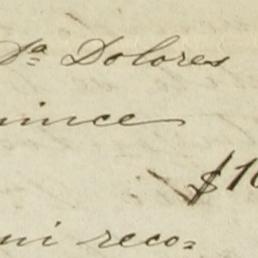 Dª Dolores
uince
$10
mi reco=